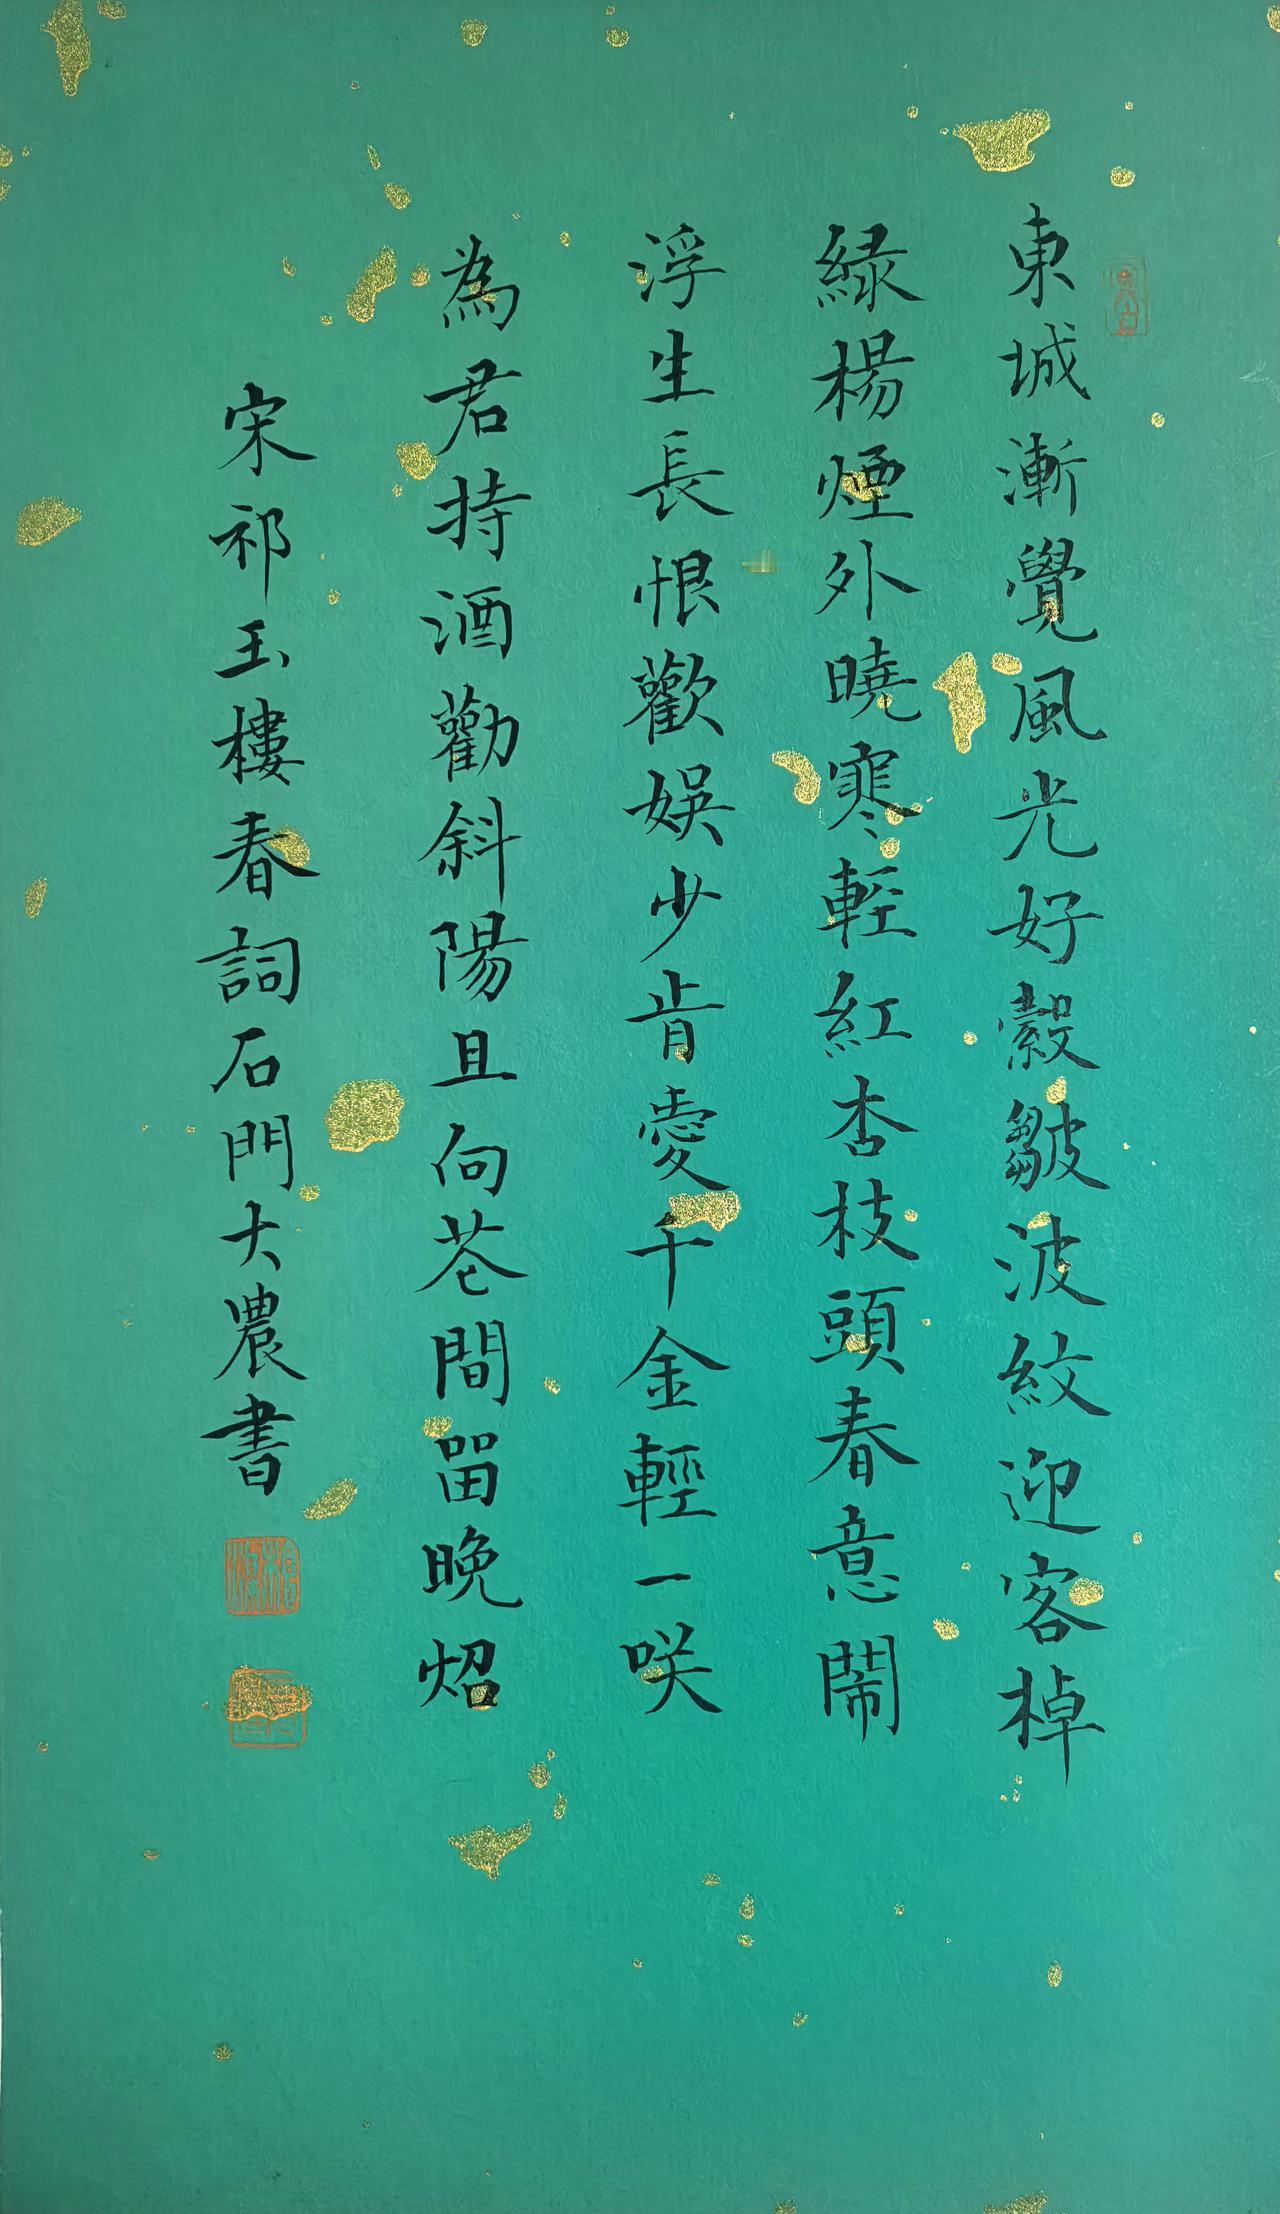 東城漸覺風光好縠皺波紋迎客棹
緑楊煙外曉寒輕紅杏枝頭春意鬧
浮生長恨歡娛少肯愛千金輕一咲
為君持酒勸斜陽且向苍間畱晚炤
宋祁玉樓春詞石門大農書